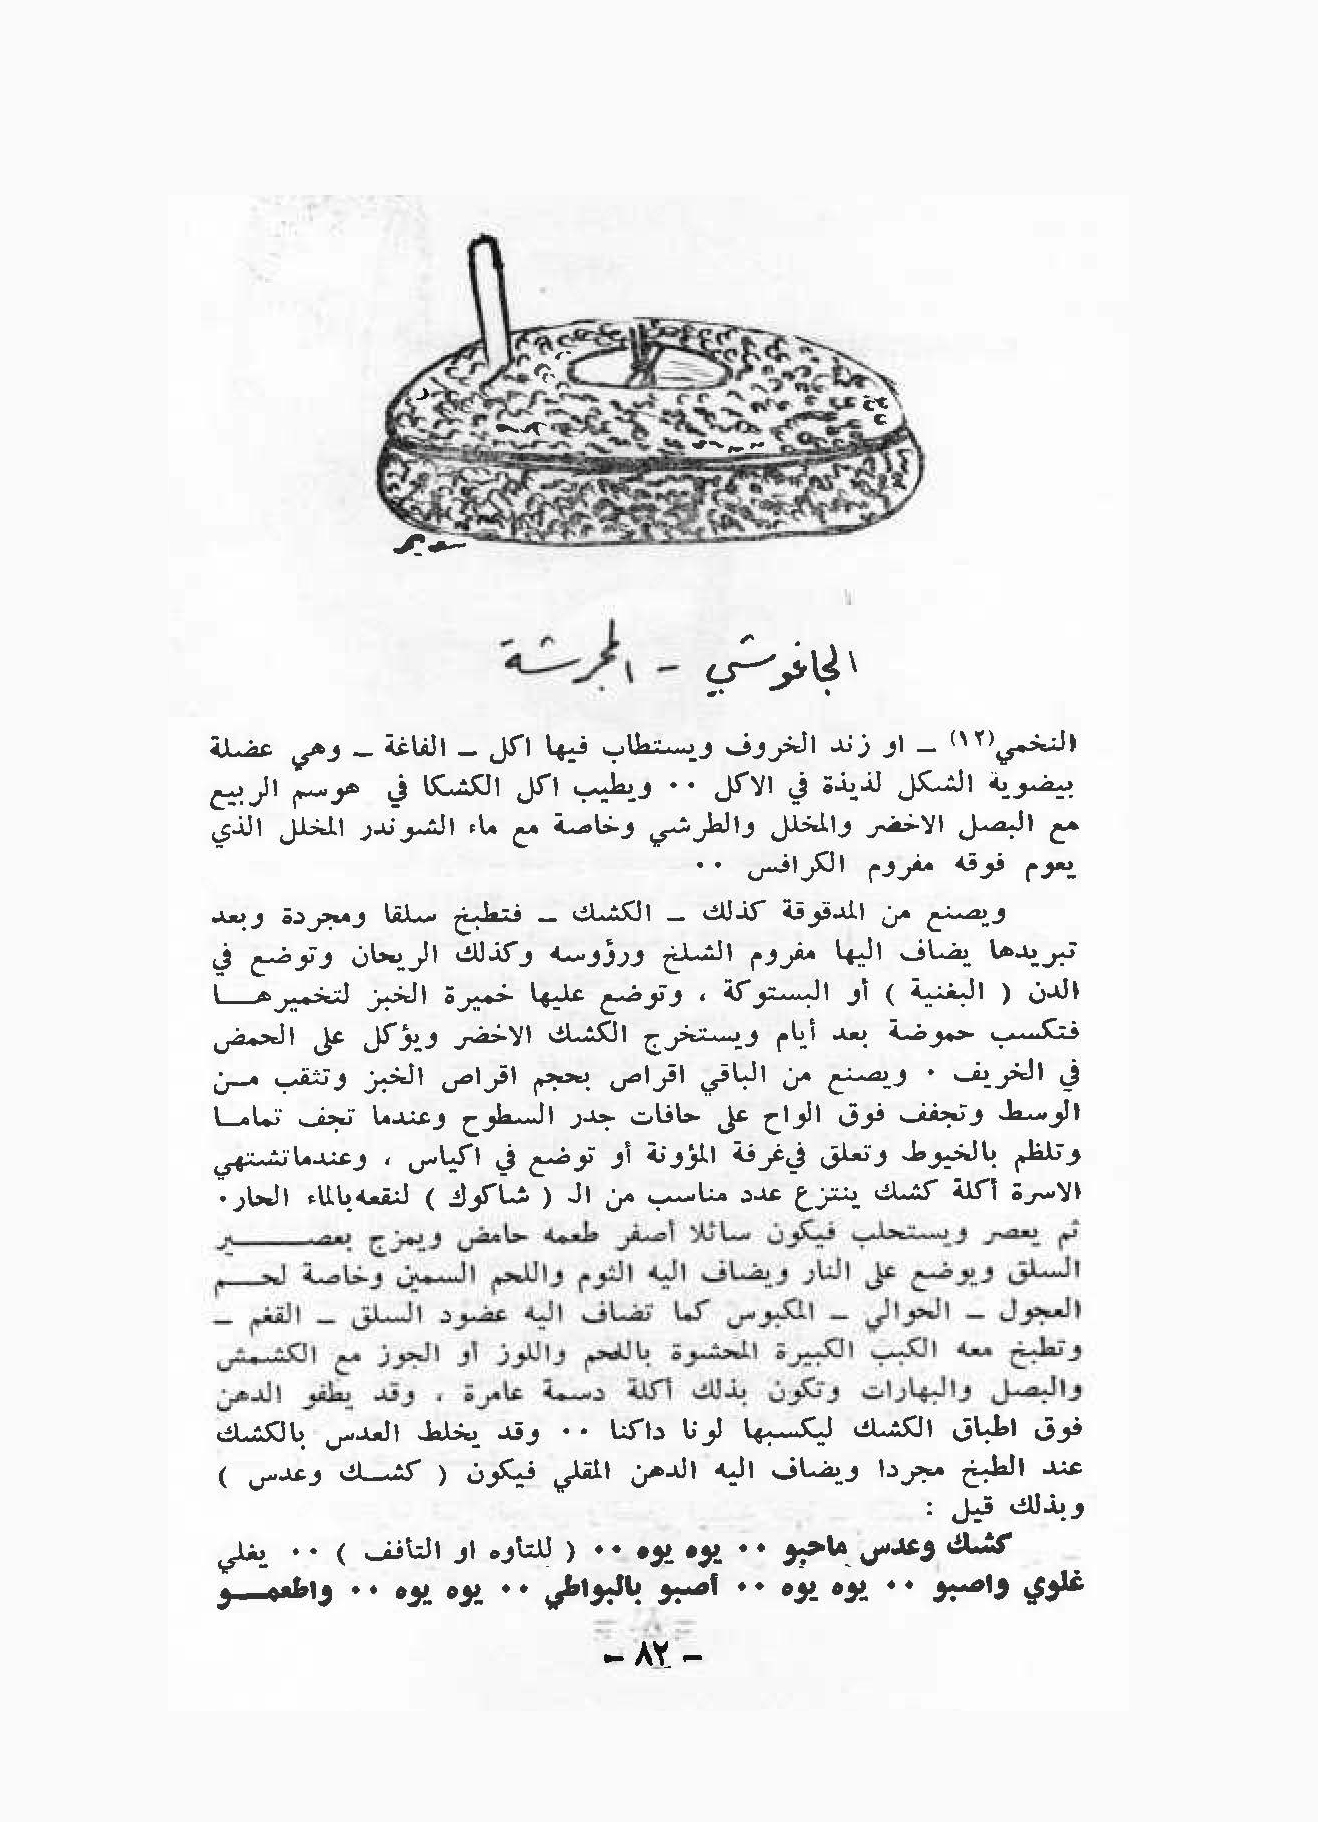 الجاغوشي - المجرشة
النخمي(١٢) ــ او زند الخروف ويستطاب فيها اكل ــ الفاغة ــ وهي عضلة
بيضوية الشكل لذيذة في الاكل ٠٠ ويطيب اكل الكشكا في موسم الربيع
مع البصل الاخضر والمخلل والطرشي وخاصة مع ماء الشوندر المخلل الذي
يعوم فوقه مفروم الكرافس ٠٠
ويصنع من المدقوقة كذلك ــ الكشك ــ فتطبخ سلقا ومجردة وبعد
تبريدها يضاف اليها مفروم الشلخ ورؤوسه وكذلك الريحان وتوضع في
الدن ( البغنية ) أو البستوكة ، وتوضع عليها خميرة الخبز لتخميرهــا
فتكسب حموضة بعد أيام ويستخرج الكشك الاخضر ويؤكل على الحمض
في الخريف ٠ ويصنع من الباقي اقراص بحجم اقراص الخبز وتثقب مــن
الوسط وتجفف فوق الواح على حافات جدر السطوح وعندما تجف تمامــا
وتلظم بالخيوط وتعلق في غرفة المؤونة أو توضع في اكياس ، وعندما تشتهي
الاسرة أكلة كشك ينتزع عدد مناسب من الـ ( شاكوك ) لنقعه بالماء الحار٠
ثم يعصر ويستحلب فيكون سائلا أصفر طعمه حامض ويمزج بعصــــير
السلق ويوضع على النار ويضاف اليه الثوم واللحم السمين وخاصة لحــم
العجول ــ الحوالي ــ المكبوس كما تضاف اليه عضود السلق ــ القغم ــ
وتطبخ معه الكبب الكبيرة المحشوة باللحم واللوز أو الجوز مع الكشمش
والبصل والبهارات وتكون بذلك أكلة دسمة عامرة ، وقد يطفو الدهن
فوق اطباق الكشك ليكسبها لونا داكنا ٠٠ وقد يخلط العدس بالكشك
عند الطبخ مجردا ويضاف اليه الدهن المقلي فيكون ( كشــك وعدس )
وبذلك قيل :
كشك وعدس ماحبو ٠٠ يوه يوه ٠٠ ( للتأوه او التأفف ) ٠٠ يغلي
غلوي واصبو ٠٠ يوه يوه ٠٠ أصبو بالبواطي ٠٠ يوه يوه ٠٠ واطعمــو
ــ ٨٢ ــ